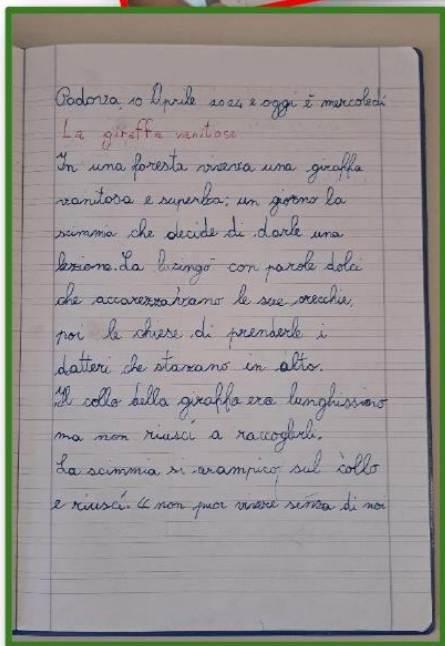 Padova, 10 Aprile 2024 e oggi è mercoledì
La giraffa vanitosa
In una foresta viveva una giraffa
vanitosa e superba; un giorno la
scimmia che decide di darle una
lezione. La lusingò con parole dolci
che accarezzavano le sue orecchie,
poi le chiese di prenderle i
datteri che stavano in alto.
Il collo della giraffa era lunghissimo
ma non riuscì a raccoglerli.
La scimmia si arampicò sul collo
e riuscì. " non puoi vivere senza di noi